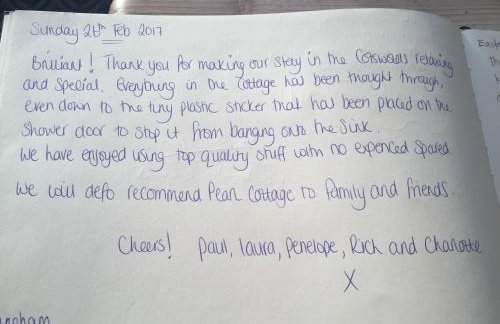 Sunday 26th Feb 2017
Brilliant! Thank you for making our stay in the Cotswolds relaxing
and special. Everything in the cottage has been thought through,
even down to the tiny plastic sticker that has been placed on the
shower door to stop it from banging onto the sink.
We have enjoyed using top quality stuff with no expenced spared.
We will defo recommend Pear Cottage to family and friends.
Cheers! Paul, Laura, Penelope, Rich and Charlotte
X